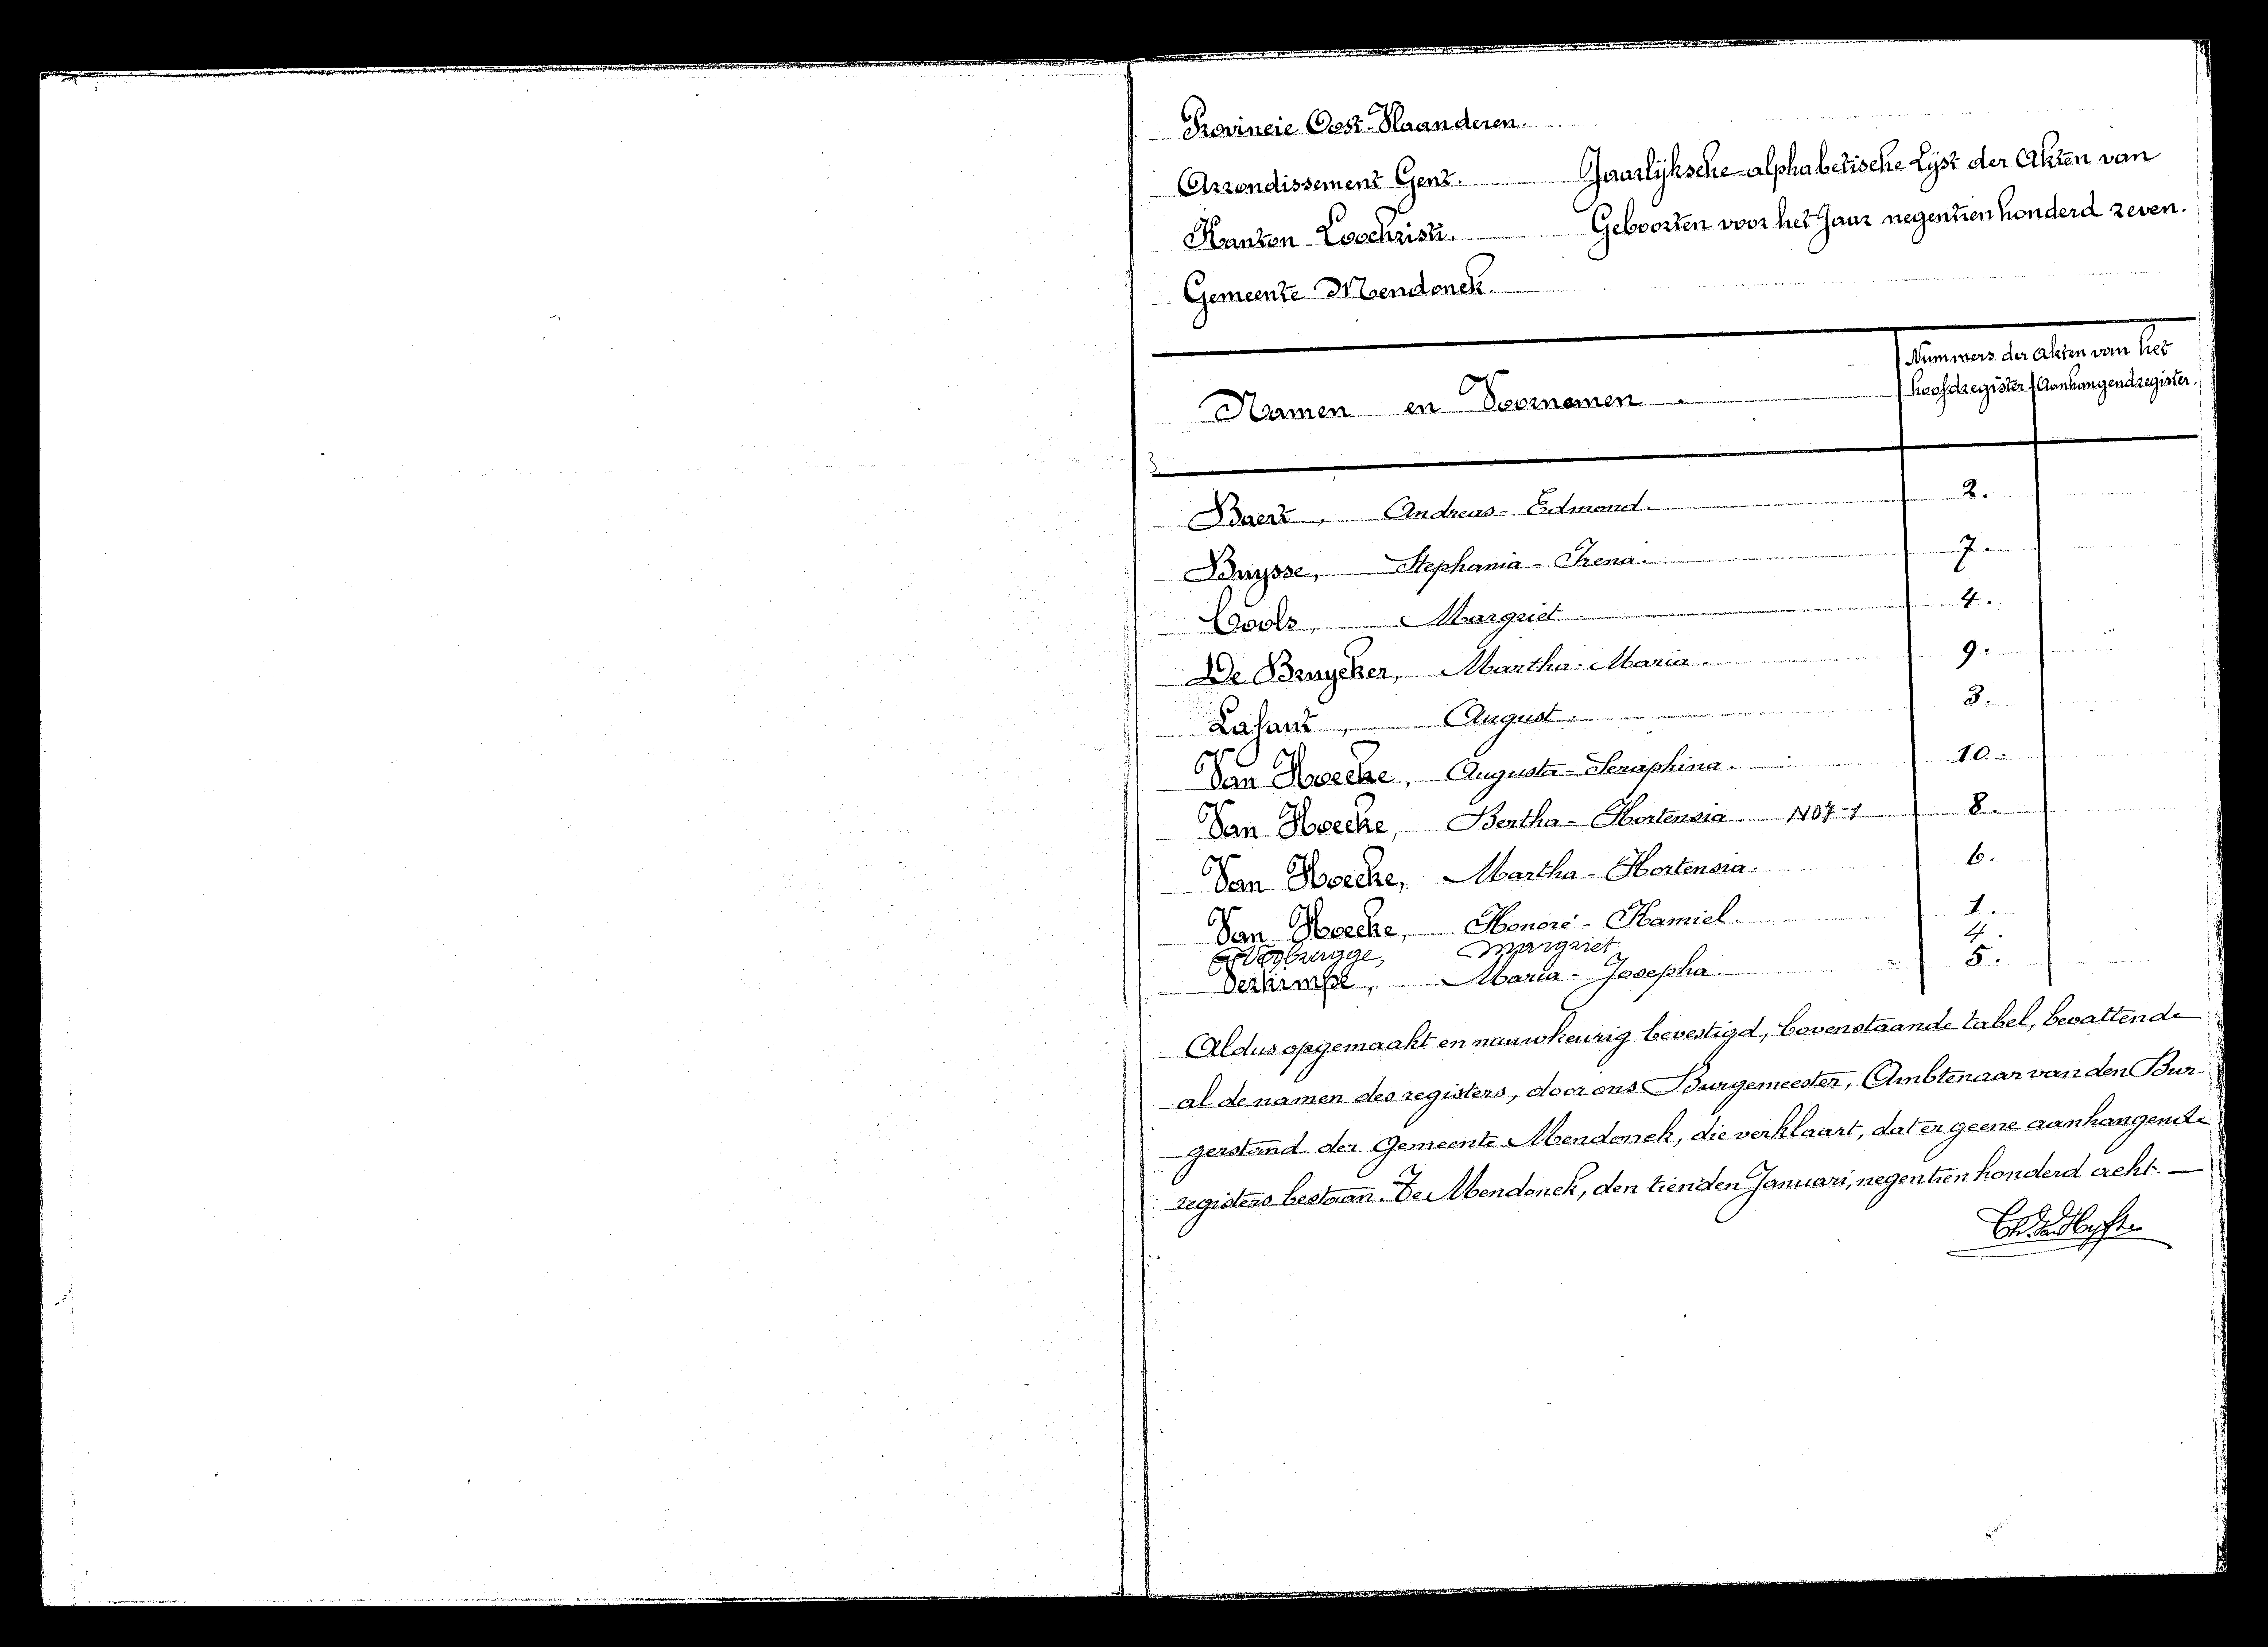 Provincie Oost-Vlaanderen.
Arrondissement Gent. Jaarlijksche alphabetische Lijst der Akten van
Kanton Loochristi. Geboorten voor het Jaar negentien honderd zeven.
Gemeente Mendonck.
Nummers der akten van het
Namen en Voornamen. hoofdregister Aanhangendregister.
Baert, Andreas-Edmond. 2.
Buysse, Stephania-Irena. 7.
Cools, Margriet. 4.
De Bruycker, Martha-Maria. 9.
Lafaut, August. 3.
Van Hoecke, Augusta-Seraphina. 10.
Van Hoecke, Bertha-Hortensia 8.
Van Hoecke, Martha-Hortensia. 6.
Van Hoecke, Honoré-Kamiel. 1.
Verbrugge, Margriet 4.
Verkimpe, Maria-Josepha 5.
Aldus opgemaakt en nauwkeurig bevestigd, bovenstaande tabel, bevattende
al de namen des registers, door ons Burgemeester, Ambtenaar van den Bur-
gerstand der Gemeente Mendonck, die verklaart, dat er geene aanhangende
registers bestaan. Te Mendonck, den tienden Januari, negentien honderd acht.